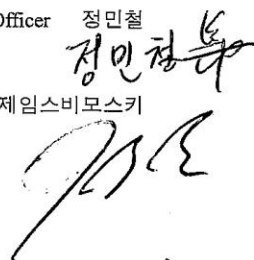 Officer 정민철
정민철
제임스비모스키